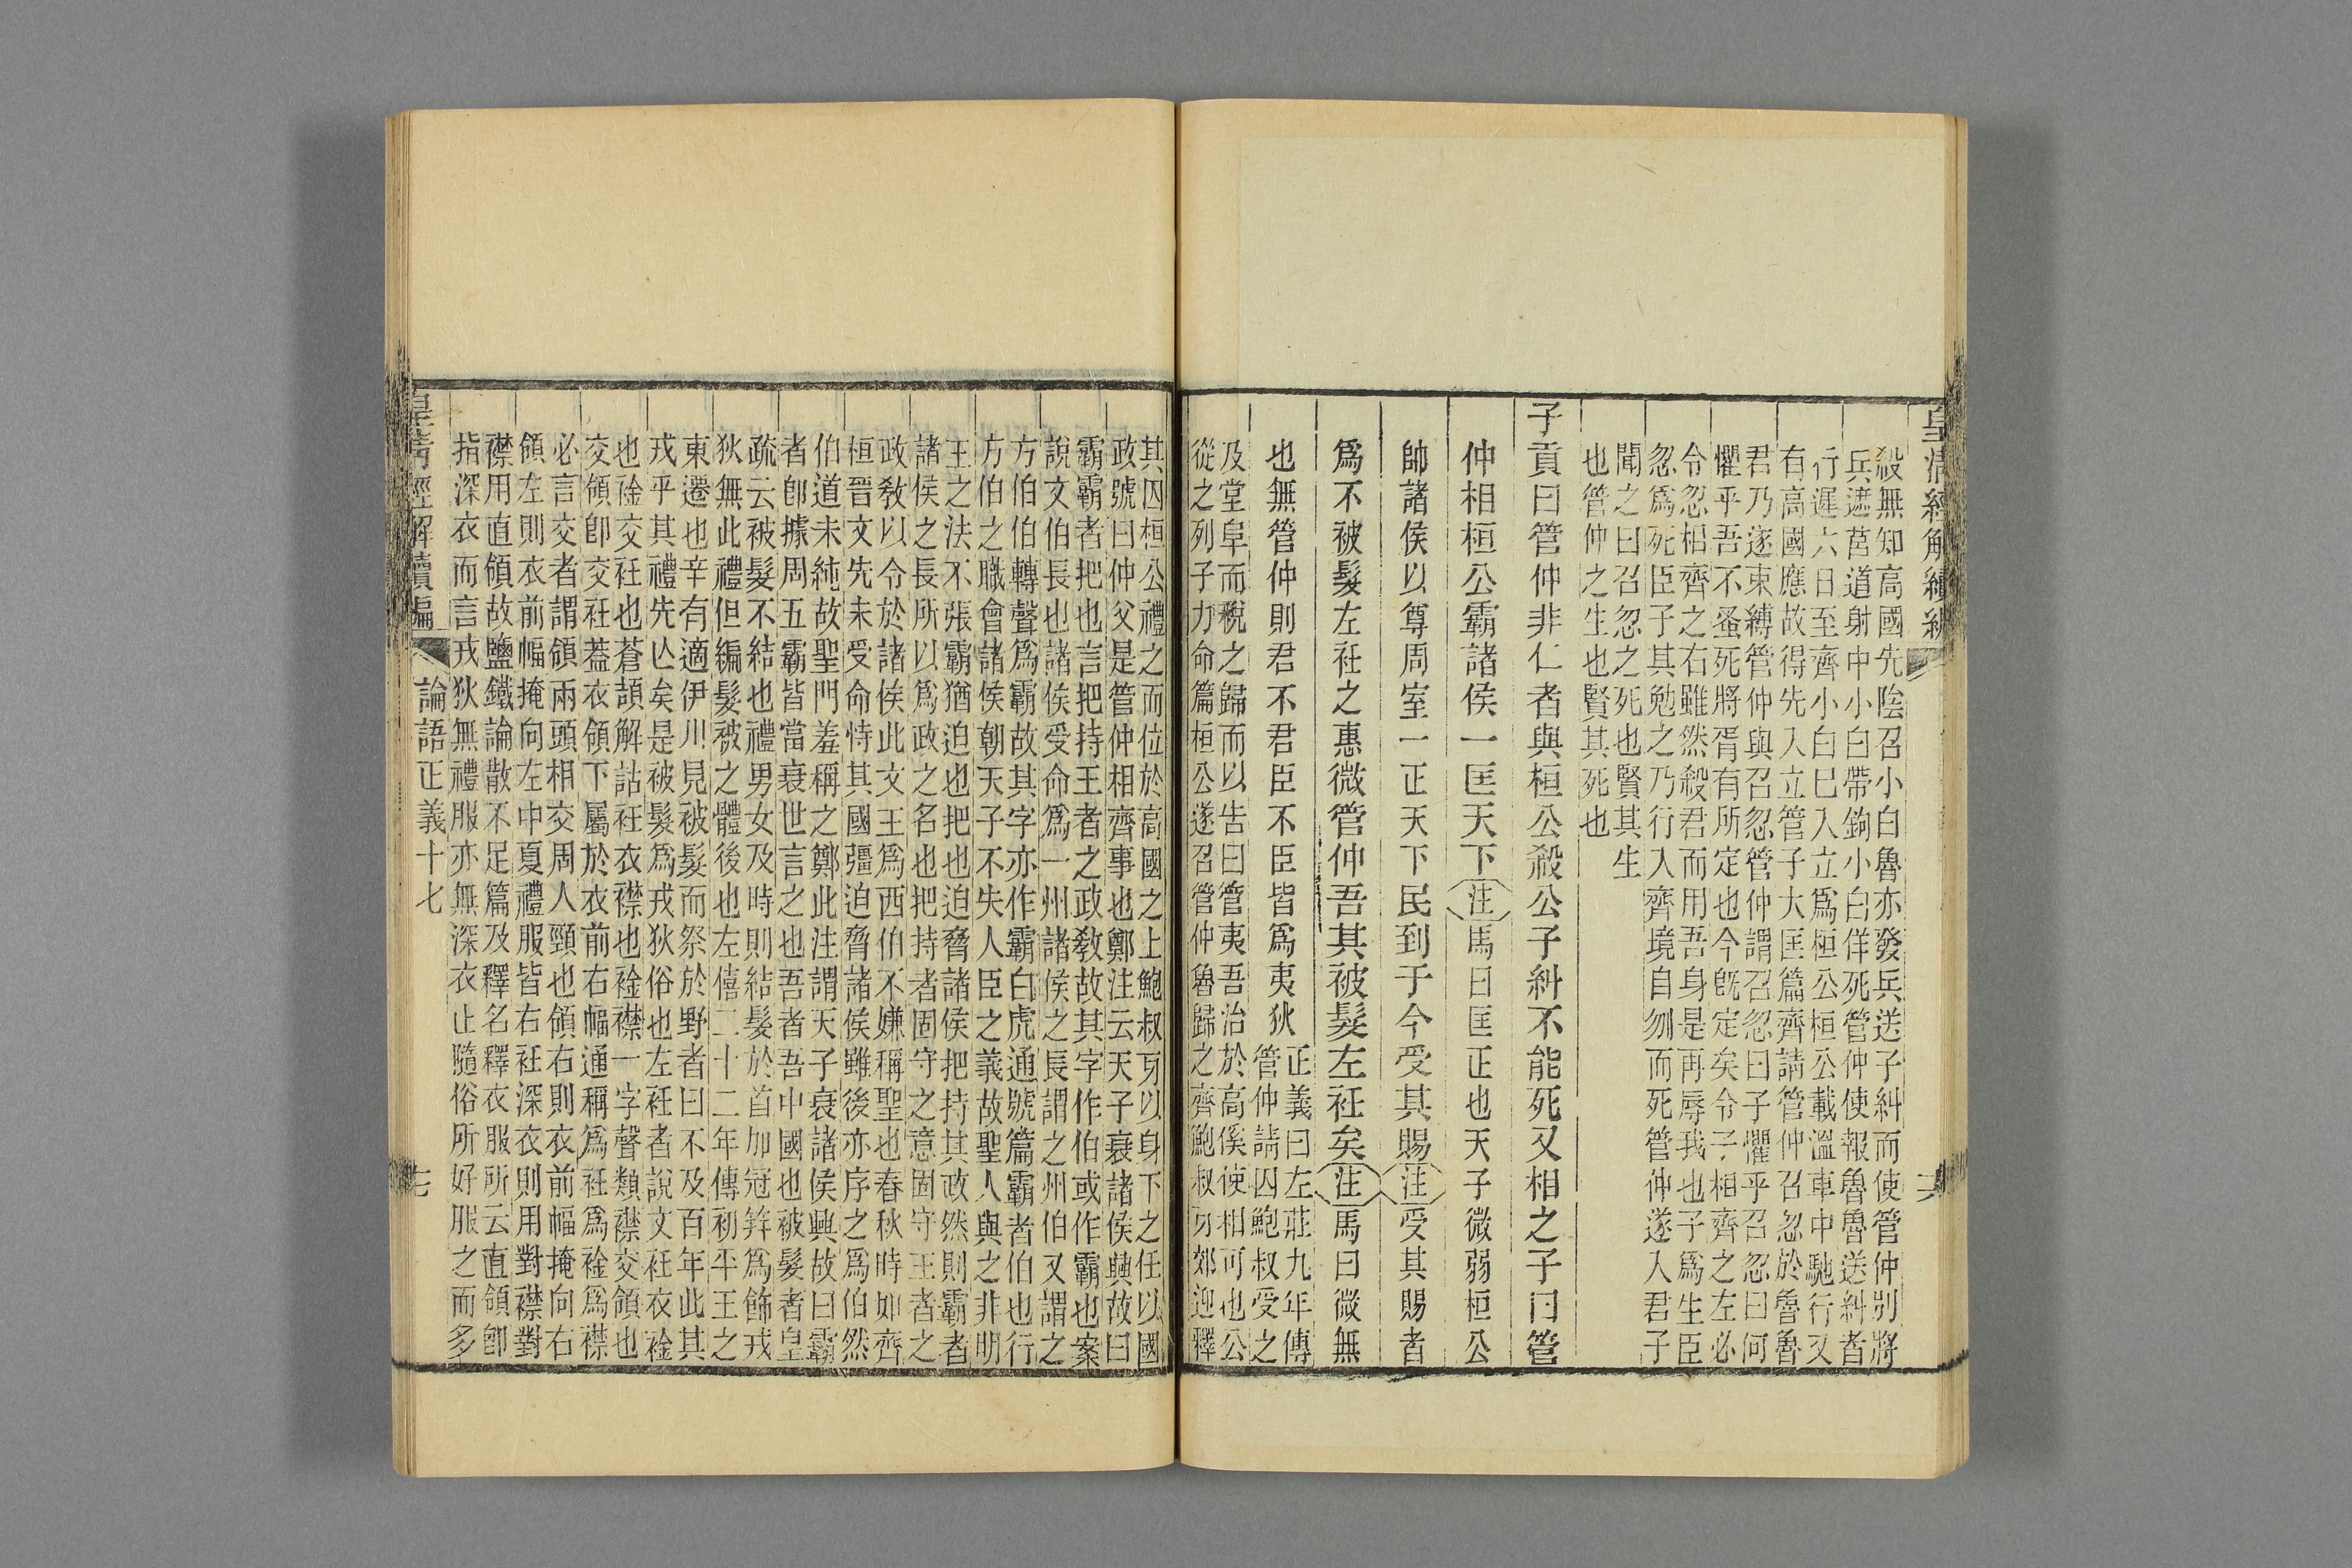 皇清經解續編
十六
殺無知高國先陰召小白魯亦發兵送子糾而使管仲別將
兵遮莒道射中小白帶鉤小白佯死管仲使報魯魯送糾者
行遲六日至齊小白已入立爲桓公桓公載溫車中馳行又
有高國應故得先入立管子大匡篇齊請管仲召忽於魯魯
君乃遂束縛管仲與召忽管仲謂召忽曰子懼乎召忽曰何
懼乎吾不蚤死將胥有所定也今既定矣令子相齊之左必
令忽相齊之右雖然殺君而用吾身是再辱我也子爲生臣
忽爲死臣子其勉之乃行入齊境自刎而死管仲遂入君子
聞之曰召忽之死也賢其生
也管仲之生也賢其死也
子貢曰管仲非仁者與桓公殺公子糾不能死又相之子曰管
仲相桓公霸諸侯一匡天下注馬曰匡正也天子微弱桓公
帥諸侯以尊周室一正天下民到于今受其賜注受其賜者
爲不被髮左衽之惠微管仲吾其被髮左衽矣注馬曰微無
也無管仲則君不君臣不臣皆爲夷狄
正義曰左莊九年傳
管仲請囚鮑叔受之
及堂阜而稅之歸而以告曰管夷吾治於高傒使相可也公
從之列子力命篇桓公遂召管仲魯歸之齊鮑叔牙郊迎釋
其囚桓公禮之而位於高國之上鮑叔牙以身下之任以國
政號曰仲父是管仲相齊事也鄭注云天子衰諸侯興故曰
霸霸者把也言把持王者之政敎故其字作伯或作霸也案
說文伯長也諸侯受命爲一州諸侯之長謂之州伯又謂之
方伯伯轉聲爲霸故其字亦作霸白虎通號篇霸者伯也行
方伯之職會諸侯朝天子不失人臣之義故聖人與之非明
王之法不張霸猶迫也把也迫脅諸侯把持其政然則霸者
諸侯之長所以爲政之名也把持者固守之意固守王者之
政敎以令於諸侯此文王爲西伯不嫌稱聖也春秋時如齊
桓晉文先未受命恃其國彊迫脅諸侯雖後亦序之爲伯然
伯道未純故聖門羞稱之鄭此注謂天子衰諸侯興故曰霸
者卽據周五霸皆當衰世言之也吾者吾中國也被髮者皇
疏云被髮不結也禮男女及時則結髮於首加冠笄爲飾戎
狄無此禮但編髮被之體後也左僖二十二年傳初平王之
東遷也辛有適伊川見被髮而祭於野者曰不及百年此其
戎乎其禮先亾矣是被髮爲戎狄俗也左衽者說文衽衣䘳
也䘳交衽也蒼頡解詁衽衣襟也䘳襟一字聲類襟交領也
交領卽交衽蓋衣領下屬於衣前右幅通稱爲衽爲䘳爲襟
必言交者謂領兩頭相交周人頸也領右則衣前幅掩向右
領左則衣前幅掩向左中夏禮服皆右衽深衣則用對襟對
襟用直領故鹽鐵論散不足篇及釋名釋衣服所云直領卽
指深衣而言戎狄無禮服亦無深衣止隨俗所好服之而多
皇清經解續編
論語正義十七
十七